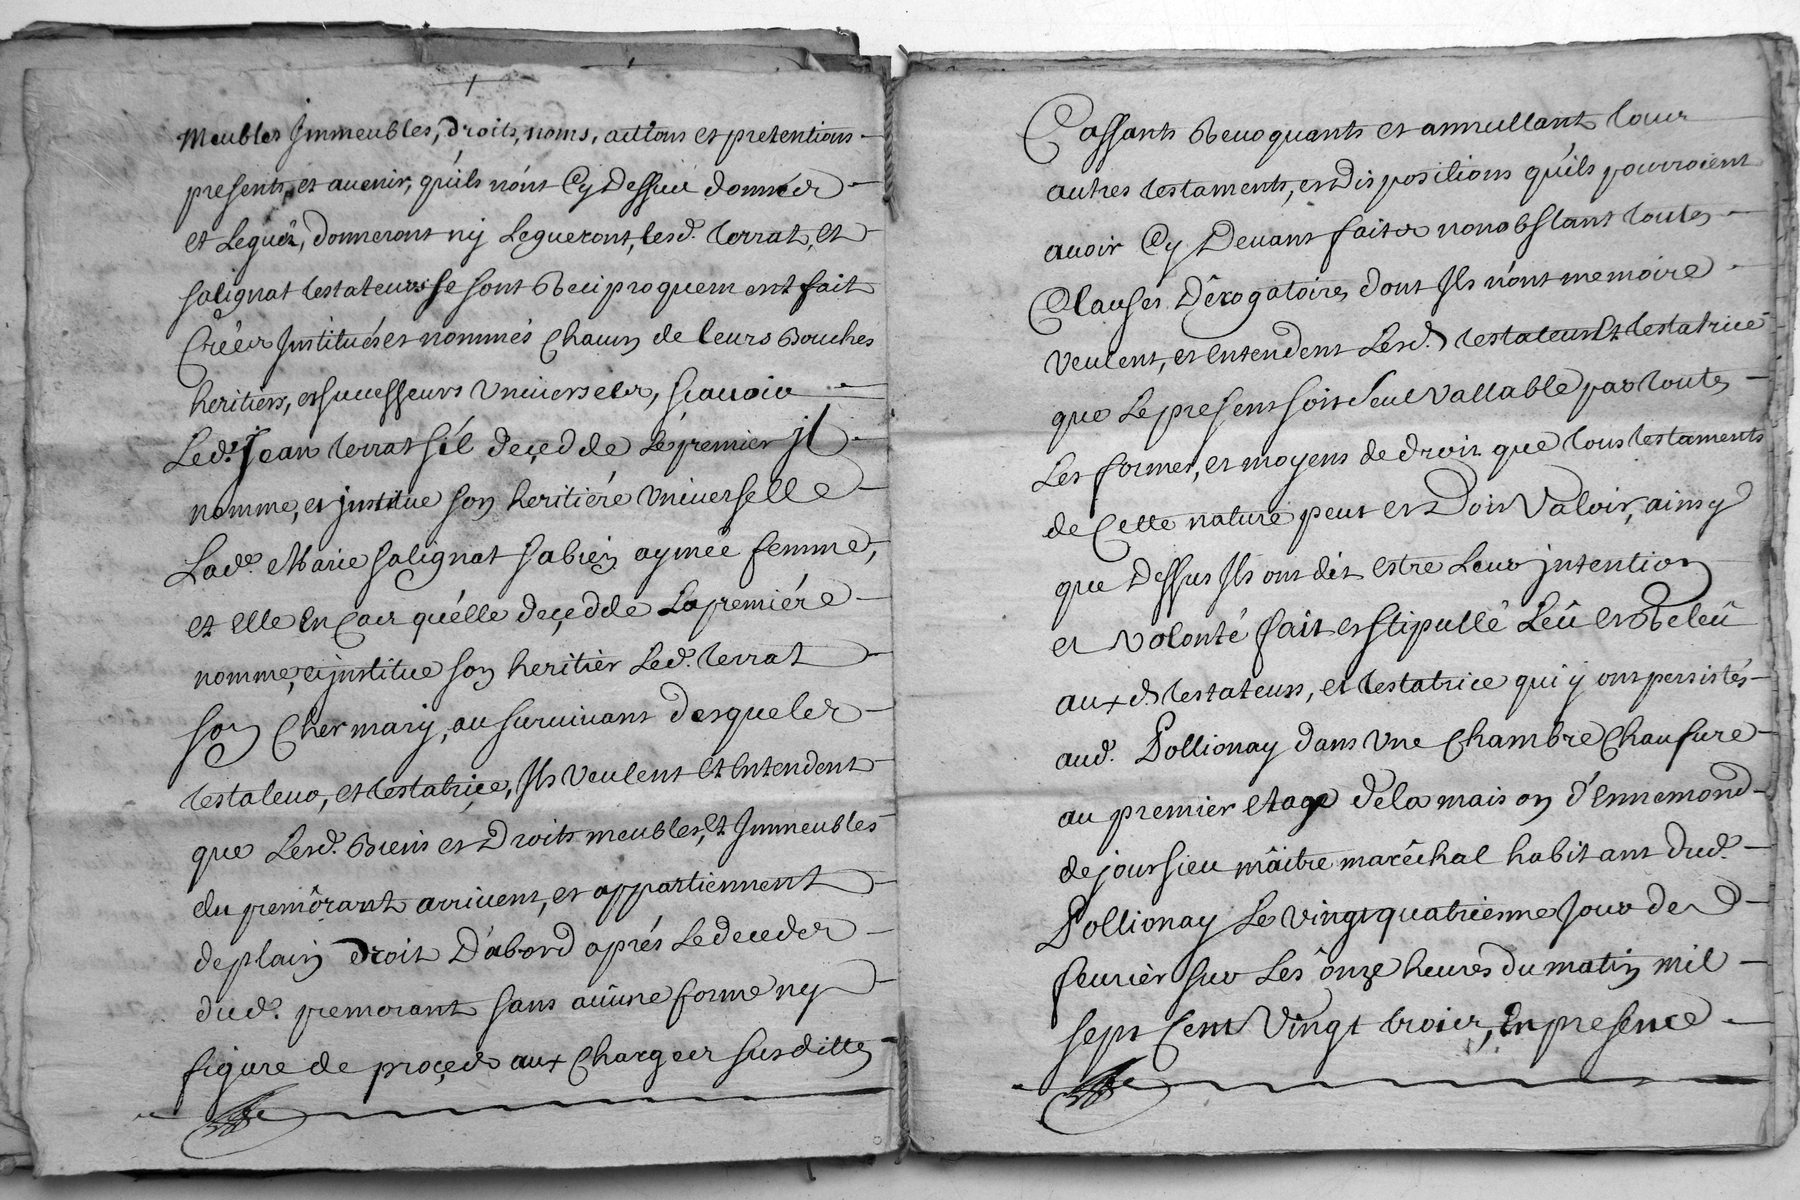 Meubles Jmmeubles, droits, noms, actions et pretentions
presents, et auenir, qu'ils n'ónt Cy Dessus donnés
et Legués, donneront ny Legueront, lesd. terrat, et
salignat testateurs se sont Reciproquement fait
Créés Jnstitués et nommés Chacun de leurs Bouches
heritiers, et successeurs Vniversels, scauoir
Led. Jean terrat s'il deçedde Le premier jl
nomme, et jnstitue son heritiére Vniuerselle
Lad.e Marie salignat sa bien aymée femme,
et Elle En Cas qu'élle deçedde La premiére
nomme, et jnstitue son heritiér Led. terrat
son Cher mary, au suruiuant desquels
testateur, et testatriçe, Jls Veulent Et Entendent
que Lesd. Biens et Droits meubles, Et Jmmeubles
du premôrant arriuent, et appartiennent
de plain droit D'abord aprés Le decedes
dud. premorant sans aucune forme ny
figure de proçes aux Charges susdittes
Cassants Reuoquants et annullant tous
autres testaments, et Dispositions qu'ils pourroient
auoir Cy Deuant faites nonobstant toutes
Clauses Dêrogatoires dont Jls n'ónt memoire
Veulent, et Entendent Lesd. testateur Et testatrice
que Le present soit seul Vallable par toutes
Les formes, et moyens de droit que tous testaments
de Cette nature peut et Doit Valoir, ainsy
que Dessus Jls ont dit estre Leur jntention
et Volonté fait et stipullé Leû et Releû
aux d. testateurs, et testatrice qui y ont persistés
aud. Pollionay dans Vne Chambre Chaufure
au premier Etage de la maison d'Ennemond
de joursieu mâitre marêchal habitant dud.
Pollionay Le Vingt quatrienne Jour de
feurièr sur Les ônze heures du matin mil
sept Cent Vingt trois, En presence